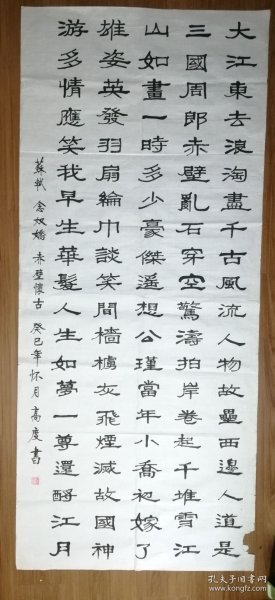 大江東去浪淘盡千古風流人物故壘西邊人道是
三國周郎赤壁亂石穿空驚濤拍岸卷起千堆雪江
山如畫一時多少豪傑遙想公瑾當年小喬初嫁了
雄姿英發羽扇綸巾談笑間檣櫓灰飛煙滅故國神
游多情應笑我早生華髮人生如夢一尊還酹江月
蘇軾 念奴嬌 赤壁懷古 癸巳年 月 高度書
孔夫子旧书网